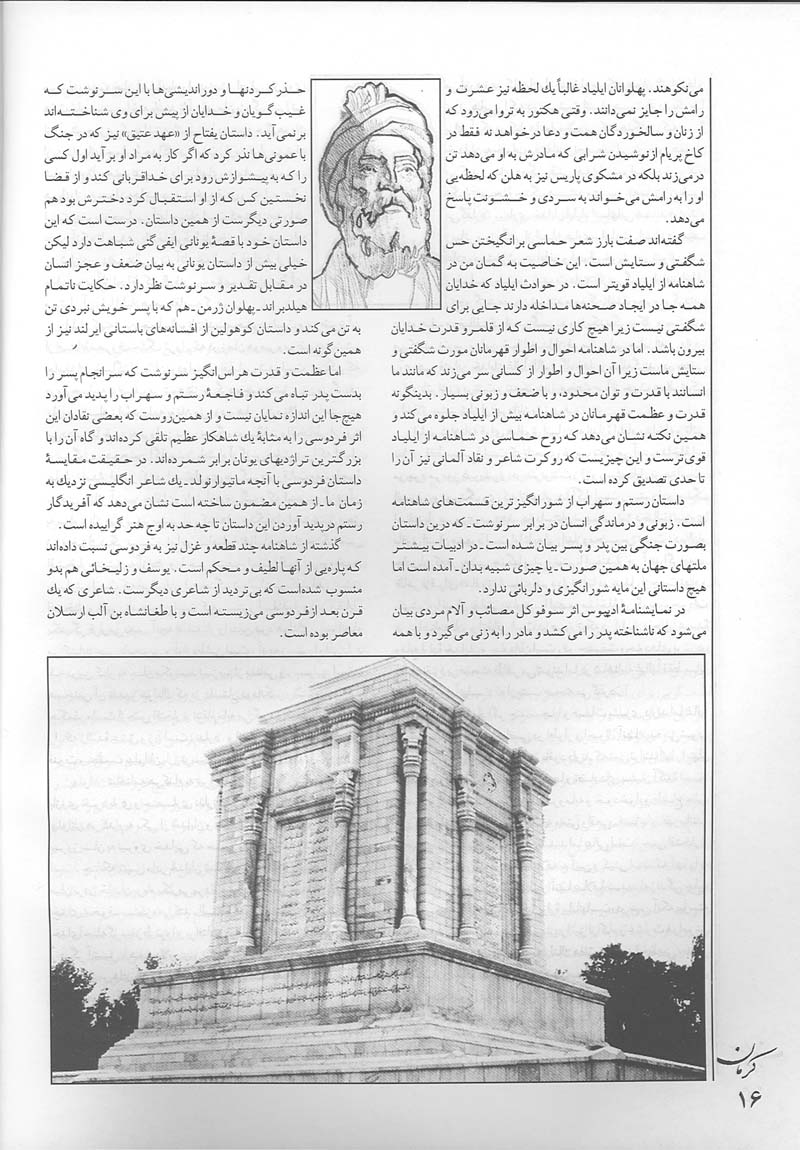 می‌نکوهند. پهلوانان ایلیاد غالباً یك لحظه نیز عشرت و
رامش را جایز نمی‌دانند. وقتی هکتور به تروا می‌رود که
از زنان و سالخوردگان همت و دعا درخواهد نه فقط در
کاخ پریام از نوشیدن شرابی که مادرش به او می‌دهد تن
در می‌زند بلکه در مشکوی پاریس نیز به هلن که لحظه‌یی
او را به رامش می‌خواند به سردی و خشونت پاسخ
می‌دهد.
گفته‌اند صفت بارز شعر حماسی برانگیختن حس
شگفتی و ستایش است. این خاصیت به گمان من در
شاهنامه از ایلیاد قویتر است. در حوادث ایلیاد که خدایان
همه جا در ایجاد صحنه‌ها مداخله دارند جایی برای
شگفتی نیست زیرا هیچ کاری نیست که از قلمرو قدرت خدایان
بیرون باشد. اما در شاهنامه احوال و اطوار قهرمانان مورث شگفتی و
ستایش ماست زیرا آن احوال و اطوار از کسانی سر می‌زند که مانند ما
انسانند با قدرت و توان محدود، و با ضعف و زبونی بسیار. بدینگونه
قدرت و عظمت قهرمانان در شاهنامه بیش از ایلیاد جلوه می‌کند و
همین نکته نشان می‌دهد که روح حماسی در شاهنامه از ایلیاد
قوی‌ترست و این چیزیست که روکرت شاعر و نقاد آلمانی نیز آن را
تا حدی تصدیق کرده است.
داستان رستم و سهراب از شورانگیزترین قسمت‌های شاهنامه
است. زبونی و درماندگی انسان در برابر سرنوشت ـ که درین داستان
بصورت جنگی بین پدر و پسر بیان شده است ـ در ادبیات بیشتر
ملتهای جهان به همین صورت ـ یا چیزی شبیه بدان ـ آمده است اما
هیچ داستانی این مایه شورانگیزی و دلربائی ندارد.
در نمایشنامهٔ ادیپوس اثر سوفوکل مصائب و آلام مردی بیان
می‌شود که ناشناخته پدر را می‌کشد و مادر را به زنی می‌گیرد و با همه
حذر کردنها و دوراندیشی‌ها با این سرنوشت که
غیب گویان و خدایان از پیش برای وی شناخته‌اند
برنمی‌آید. داستان یفتاح از «عهد عتیق» نیز که در جنگ
با عمونی‌ها نذر کرد که اگر کار به مراد او برآید اول کسی
را که به پیشوازش رود برای خدا قربانی کند و از قضا
نخستین کس که از او استقبال کرد دخترش بود هم
صورتی دیگرست از همین داستان. درست است که این
داستان خود با قصهٔ یونانی ایفی‌گنی شباهت دارد لیکن
خیلی بیش از داستان یونانی به بیان ضعف و عجز انسان
در مقابل تقدیر و سرنوشت نظر دارد. حکایت ناتمام
هیلدبراند ـ پهلوان ژرمن ـ هم که با پسر خویش نبردی تن
به تن می‌کند و داستان کوهولین از افسانه‌های باستانی ایرلند نیز از
همین گونه است.
اما عظمت و قدرت هراس‌انگیز سرنوشت که سرانجام پسر را
بدست پدر تباه می‌کند و فاجعهٔ رستم و سهراب را پدید می‌آورد
هیچ‌جا این اندازه نمایان نیست و از همین‌روست که بعضی نقادان این
اثر فردوسی را به مثابهٔ یك شاهکار عظیم تلقی کرده‌اند و گاه آن را با
بزرگترین تراژدیهای یونان برابر شمرده‌اند. در حقیقت مقایسهٔ
داستان فردوسی با آنچه ماتیوارنولد ـ یك شاعر انگلیسی نزدیك به
زمان ما ـ از همین مضمون ساخته است نشان می‌دهد که آفریدگار
رستم در پدید آوردن این داستان تا چه حد به اوج هنر گراییده است.
گذشته از شاهنامه چند قطعه و غزل نیز به فردوسی نسبت داده‌اند
که پاره‌یی از آنها لطیف و محکم است. یوسف و زلیخائی هم بدو
منسوب شده‌است که بی‌تردید از شاعری دیگرست. شاعری که یك
قرن بعد از فردوسی می‌زیسته است و با طغانشاه بن آلب ارسلان
معاصر بوده است.
کرمان
۱۶